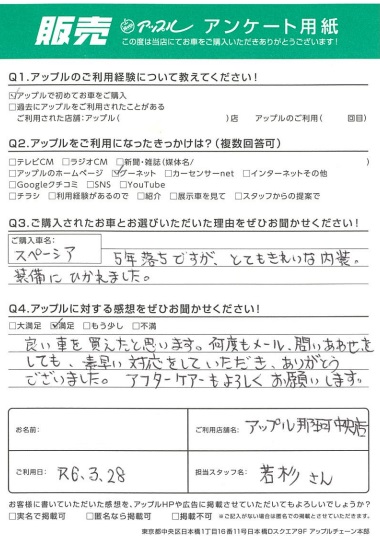 販売 アップル アンケート用紙
この度は当店にてお車をご購入いただきありがとうございます!
Q1.アップルのご利用経験について教えてください!
☑アップルで初めてお車をご購入
□過去にアップルをご利用されたことがある
ご利用された店舗:アップル( )店 アップルのご利用( 回目)
Q2.アップルをご利用になったきっかけは?(複数回答可)
□テレビCM □ラジオCM □新聞・雑誌(媒体名/ )
□アップルのホームページ ☑グーネット □カーセンサーnet □インターネットその他
□Googleクチコミ □SNS □YouTube
□チラシ □利用経験があるので □紹介 □展示車を見て □スタッフからの提案で
Q3.ご購入されたお車とお選びいただいた理由をぜひお聞かせください!
ご購入車名:
スペーシア 5年落ちですが、とてもきれいな内装。
装備にひかれました。
Q4.アップルに対する感想をぜひお聞かせください!
□大満足 ☑満足 □もう少し □不満
良い車を買えたと思います。何度もメール、問いあわせを
しても、素早い対応をしていただき、ありがとう
ございました。アフターケアーもよろしくお願いします。
お名前: ご利用店舗名: アップル那珂中央店
ご利用日: R6.3.28 担当スタッフ名: 若杉さん
お客様に書いていただいた感想を、アップルHPや広告に掲載させていただいてもよろしいでしょうか?
□実名で掲載可 □匿名なら掲載可 □掲載不可 ※ご記入がない場合は匿名での掲載とさせていただきます。
東京都中央区日本橋1丁目16番11号日本橋Dスクエア9F アップルチェーン本部